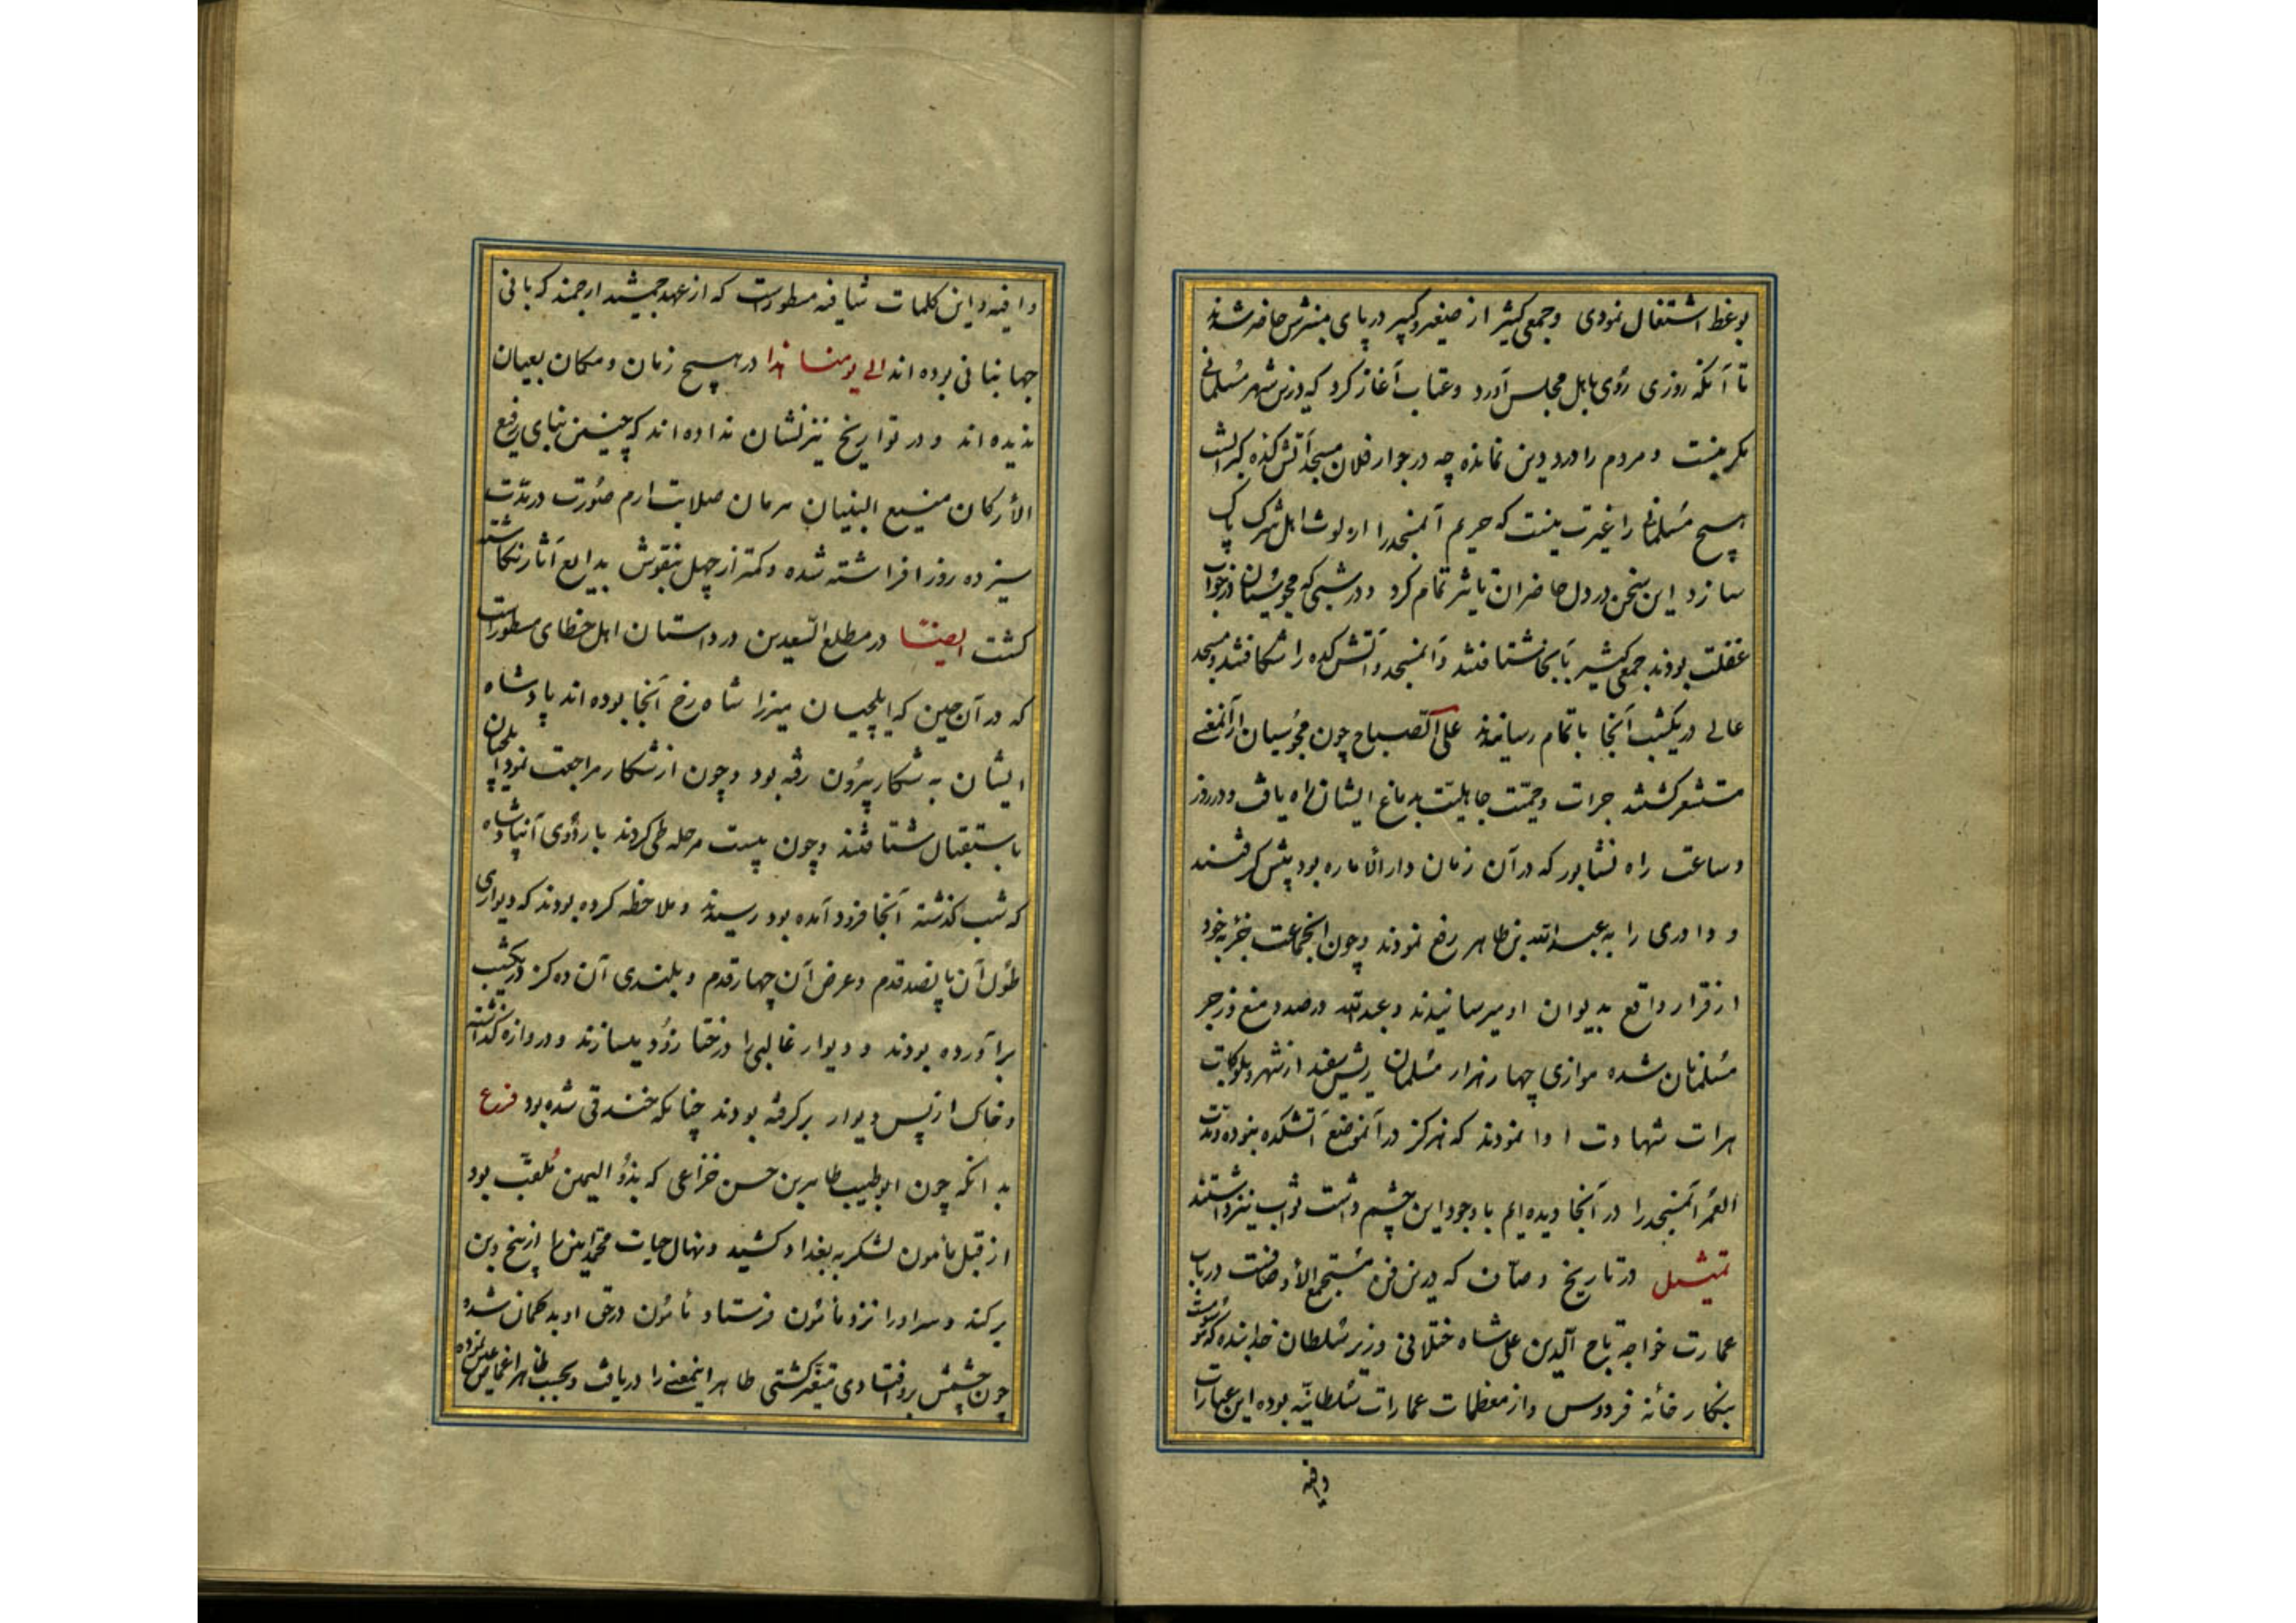 بوعظ اشتغال نمودی و جمعی کثیر از صغیر و کبیر در پای منبرش حاضر شدند
تا آنکه روزی روی باهل مجلس آورد و عتاب آغاز کرد که درین شهر مسلمانی
مکر نیست و مردم را درد دین نمانده چه در جوار فلان مسجد آتش کده کبرانست
هیچ مسلمانی را غیرت نیست که حریم آنمسجد را از لوث اهل شرک پاک
سازد این سخن در دل حاضران تاثیر تمام کرد و در شبی که مجوسیان در خواب
غفلت بودند جمعی کثیر بآنجا شتافتند و آنمسجد و آتش کده را شکافتند و مسجد
عالی در یکشب آنجا باتمام رسانیدند علی الصباح چون مجوسیان از آنمعنی
مستشعر کشتند جرات و حمیت جاهلیت بدماغ ایشان راه یافت و در روز
و ساعت راه نشابور که در آن زمان دار الاماره بود پیش کرفتند
و داوری را به عبدالله بن طاهر رفع نمودند و چون آنجماعت جزیه خود
از قرار واقع بدیوان او میرسانیدند و عبدالله در صدد منع و زجر
مسلمانان شده موازی چهار هزار مسلمان ریش سفید از شهر و بلوکات
هرات شهادت ادا نمودند که هرکز در آنموضع آتشکده نبوده و مدت
العمر آنمسجد را در آنجا دیده ایم با وجود این چشم داشت ثواب نیز داشتند
تمثیل در تاریخ وصاف که درین فن مستجمع الاوصافست در باب
عمارت خواجه تاج الدین علی شاه ختلانی وزیر سلطان خدابنده که
بنکار خانه فردوس و از معظمات عمارات سلطانیه بوده این عبارات
وافیه
وافیه و این کلمات شافیه مسطورست که از عهد جمشید ارجمند که بانی
جهانبانی بوده اند الی یومنا هذا در هیچ زمان و مکان بعیان
ندیده اند و در تواریخ نیز نشان نداده اند که چنین بنای رفیع
الارکان منیع البنیان هرمان صلابت ارم صورت در مدت
سیزده روز افراشته شده و کمتر از چهل بنقوش بدایع آثار نکاشته
کشت ایضا در مطلع السعدین در داستان اهل خطای مسطورست
که در آن حین که ایلچیان میرزا شاه رخ آنجا بوده اند پادشاه
ایشان به شکار بیرون رفته بود و چون از شکار مراجعت نمود ایلچیان
باستقبال شتافتند و چون بیست مرحله طی کردند باردوی آن پادشاه
که شب کذشته آنجا فرود آمده بود رسیدند و ملاحظه کرده بودند که دیواری
طول آن پانصد قدم و عرض آن چهار قدم و بلندی آن ده کز در یکشب
برآورده بودند و دیوار غالبی را در ختا زود میسازند و دروازه کذاشته
و خاک از پس دیوار برکرفته بودند چنانکه خندقی شده بود فرع
بدانکه چون ابو طیب طاهر بن حسن خزاعی که بذو الیمن ملقب بود
از قبل مامون لشکر به بغداد کشید و نهال حیات محمد امین را از بیخ و بن
برکند و سر او را نزد مامون فرستاد مامون در حق او بدکمان شده
چون چشمش برو افتادی متغیر کشتی طاهر اینمعنی را دریافت و بحسب ظاهر اغماض عین نموده